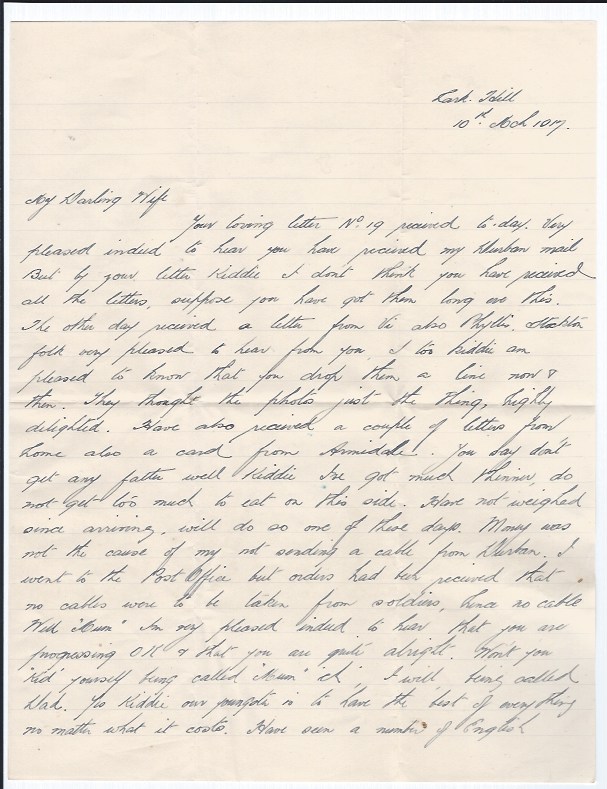 Lark Hill
10th Mch 1917.
My Darling Wife
Your loving letter No 19 received to-day. Very
pleased indeed to hear you have received my Durban mail
But by your letter Kiddie I dont think you have received
all the letters, suppose you have got them long ere this.
The other day received a letter from Vi also Phyllis. Stockton
folk very pleased to hear from you, I too Kiddie am
pleased to know that you drop them a line now &
then. They thought the photos just the thing, highly
delighted. Have also received a couple of letters from
home also a card from Armidale. You say don't
get any fatter well Kiddie I've got much thinner, do
not get too much to eat on this side. Have not weighed
since arriving, will do so one of these days. Money was
not the cause of my not sending a cable from Durban. I
went to the Post Office but orders had been received that
no cables were to be taken from soldiers, hence no cable
Well "Mum" Im very pleased indeed to hear that you are
progressing OK & that you are quite alright. Wont you
"Kid" yourself being called "Mum" eh, I will being called
Dad. Yes Kiddie our youngster is to have the best of everything
no matter what it costs. Have seen a number of English